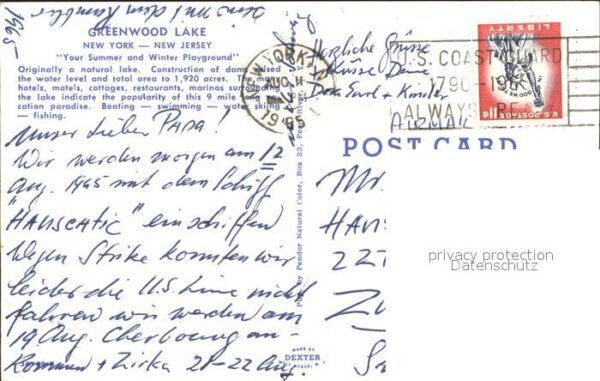 1965
GREENWOOD LAKE
NEW YORK — NEW JERSEY
"Your Summer and Winter Playground"
Originally a natural lake. Construction of dams raised
the water level and total area to 1,920 acres. The many
hotels, motels, cottages, restaurants, marinas surrounding
the lake indicate the popularity of this 9 mile long vacation
cation paradise. Boating — swimming — water skiing
— fishing.
Unser lieber Papa!
Wir werden morgen am 12
Aug. 1965 mit dem Schiff
"HANSEATIC" einschiffen
Wegen Strike konnten wir
leider die U.S. Line nicht
fahren wir werden am
19 Aug. Cherbourg an-
kommen + Zirka 21-22 Aug.
Herzliche Grüsse
+ Küsse Deine
Dora Emil + Kinder
AIRMAIL
NEW YORK, N.Y.
AUG 11
1965
U.S. COAST GUARD
1790-1965
ALWAYS READY
LIBERTY
U.S. POSTAGE
11¢
POST CARD
Mr.
HANS
227
Pub. by Pendor Natural Color, Box 33, Pearl River, N.Y.
MADE BY
DEXTER
privacy protection
Datenschutz